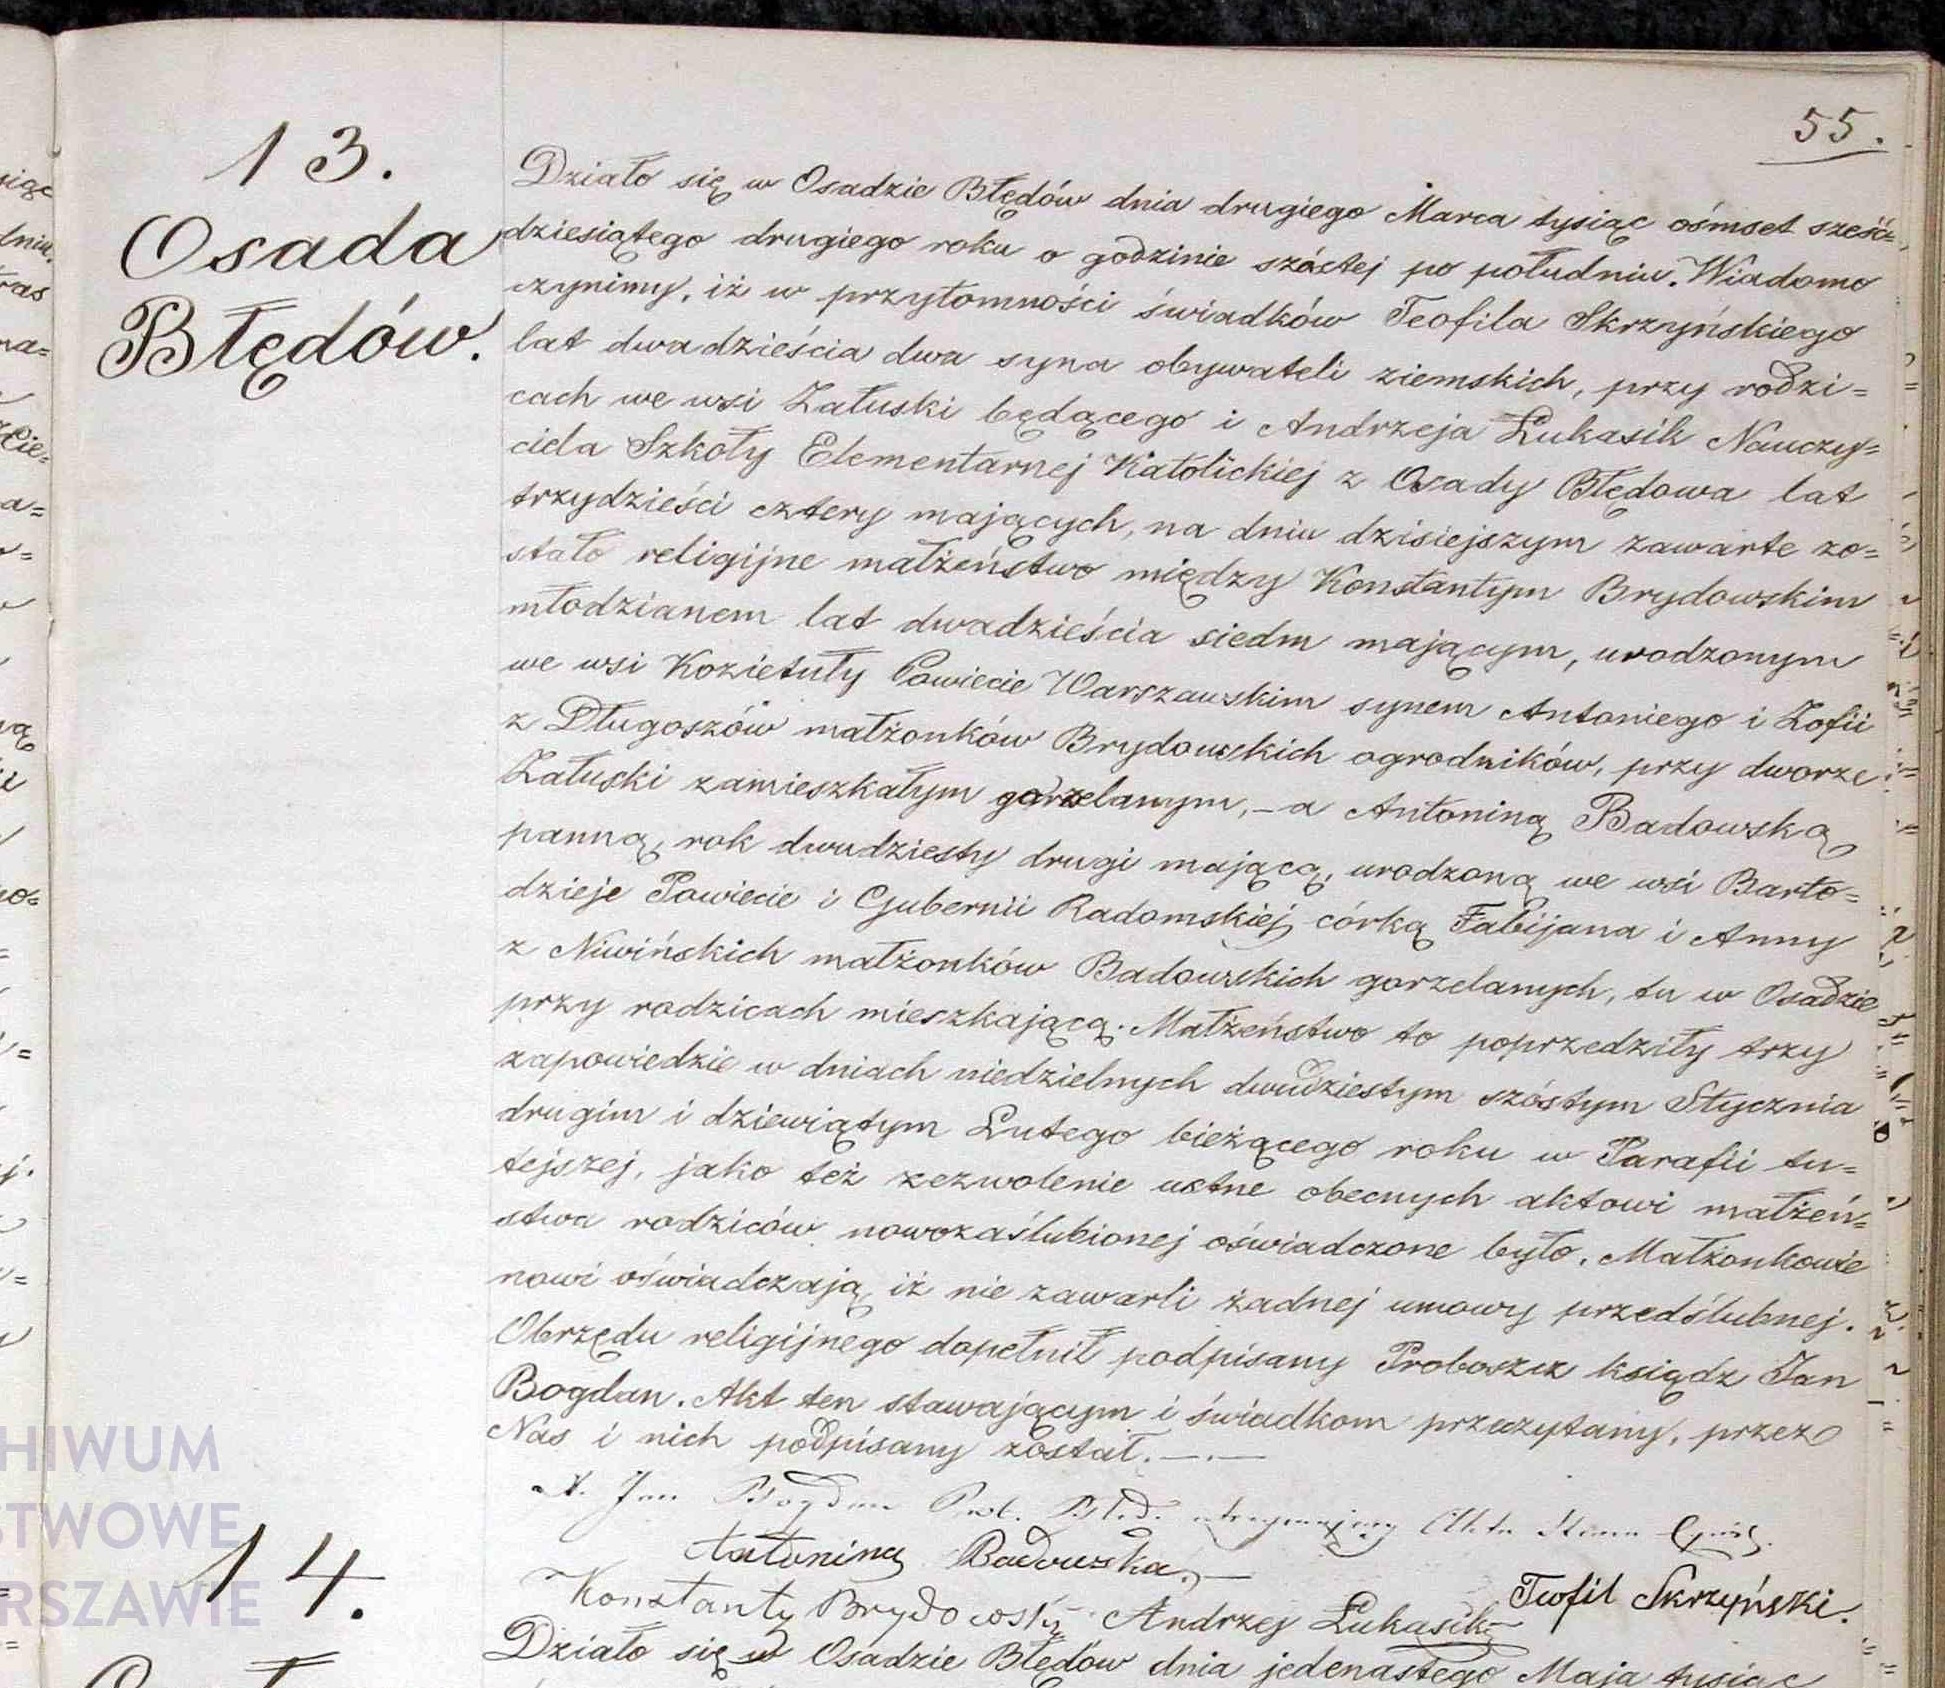 55.
13.
Osada
Błędów.
Działo się w Osadzie Błędów dnia drugiego Marca tysiąc ośmset sześć=
dziesiątego drugiego roku o godzinie szóstej po południu. Wiadomo
czynimy, iż w przytomności świadków Teofila Skrzyńskiego
lat dwadzieścia dwa syna obywateli ziemskich, przy rodzi=
cach we wsi Załuski będącego i Andrzeja Łukasik Nauczy=
ciela Szkoły Elementarnej Katolickiej z Osady Błędowa lat
trzydzieści cztery mających, na dniu dzisiejszym zawarte zo=
stało religijne małżeństwo między Konstantym Brydowskim
młodzianem lat dwadzieścia siedm mającym, urodzonym
we wsi Kozietuły Powiecie Warszawskim synem Antoniego i Zofii
z Długoszów małżonków Brydowskich ogrodników, przy dworze
Załuski zamieszkałym gorzelanym, – a Antoniną Badowską
panną, rok dwudziesty drugi mającą, urodzoną we wsi Barto=
dzieje Powiecie i Gubernii Radomskiej córką Fabijana i Anny
z Niwińskich małżonków Badowskich gorzelanych, tu w Osadzie
przy rodzicach mieszkającą. Małżeństwo to poprzedziły trzy
zapowiedzie w dniach niedzielnych dwudziestym szóstym Stycznia
drugim i dziewiątym Lutego bieżącego roku w Parafii tu=
tejszej, jako też zezwolenie ustne obecnych aktowi małżeń=
stwa rodziców nowozaślubionej oświadczone było. Małżonkowie
nowi oświadczają, iż nie zawarli żadnej umowy przedślubnej.
Obrzędu religijnego dopełnił podpisany Proboszcz ksiądz Jan
Bogdan. Akt ten stawającym i świadkom przeczytany, przez
Nas i nich podpisany został. — . —
X. Jan Bogdan Prob. Błęd. utrzymujący Akta Stanu Cywil.
Antonina Badowska. –
Teofil Skrzyński.
Konstanty Brydowski Andrzej Łukasik
14.
Działo się w Osadzie Błędów dnia jedenastego Maja tysiąc
HIWUM
STWOWE
RSZAWIE